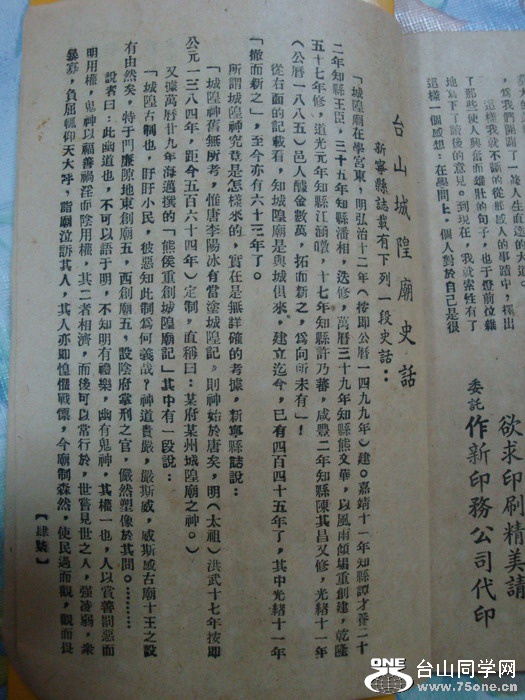 大
爲我們開闢了一
這樣我就不斷的從
了那些使人興奮而雄壯的句子，也于燈前位雜
地寫下了讀後的意見。到現在，我就索性有了
這樣一個感想：在學問上，一個人對於自己是很
欲求印刷精美請
委託作新印務公司代印
台山城隍廟史話
新寧縣誌載有下列一段史話：
「城隍廟在學宮東，明弘治十二年（按即公曆一四九九年）建。嘉靖十一年知縣譚才養二十
二年知縣王臣，三十五年知縣潘相，迭修，萬曆三十九年知縣熊文華，以風雨傾塌重創建，乾隆
五十七年修，道光元年知縣江涵暾，十七年知縣許乃蕃，咸豐二年知縣陳其昌又修，光緒十一年
（公曆一八八五）邑人醵金數萬，拓而新之，爲向所未有」！
從右面的記載看，知城隍廟是與城俱來。建立迄今，已有四百四十五年了，其中光緒十一年
「撤而新之」，至今亦有六十三年了。
所謂城隍神究竟是怎樣來的，實在是無詳確的考據，新寧縣誌說：
「城隍神舊無所考，惟唐李陽冰有當塗城隍記，則神始於唐矣，明（太祖）洪武十七年按即
公元一三八四年，距今五百六十四年）定制，直稱曰：某府某州城隍廟之神。）
又據萬曆廿九年海邁撰的「熊侯重創城隍廟記」其中有一段說：
「城隍古制也，盱盱小民，彼惡知此制爲何義哉？神道貴嚴，嚴斯威，威斯威古廟十王之設
有由然矣，特于門廡隙地東創廟五，西創廟五，設陰府掌刑之官，儼然塑像於其間。………
說者曰：此幽道也，不可以語于明，不知明有禮樂，幽有鬼神，其權一也，人以賞善罰惡而
明用權，鬼神以福善禍淫而陰用權，其二者相濟，而後可以常行於，世嘗見世之人，強凌弱，衆
暴寡，負屈輒仰天大呼，詣廟泣訴其人，其人亦即惶懼戰慄，今廟制森然，使民過而觀，觀而畏
【肆柒】
ONE
台山同学网
www.75one.cn